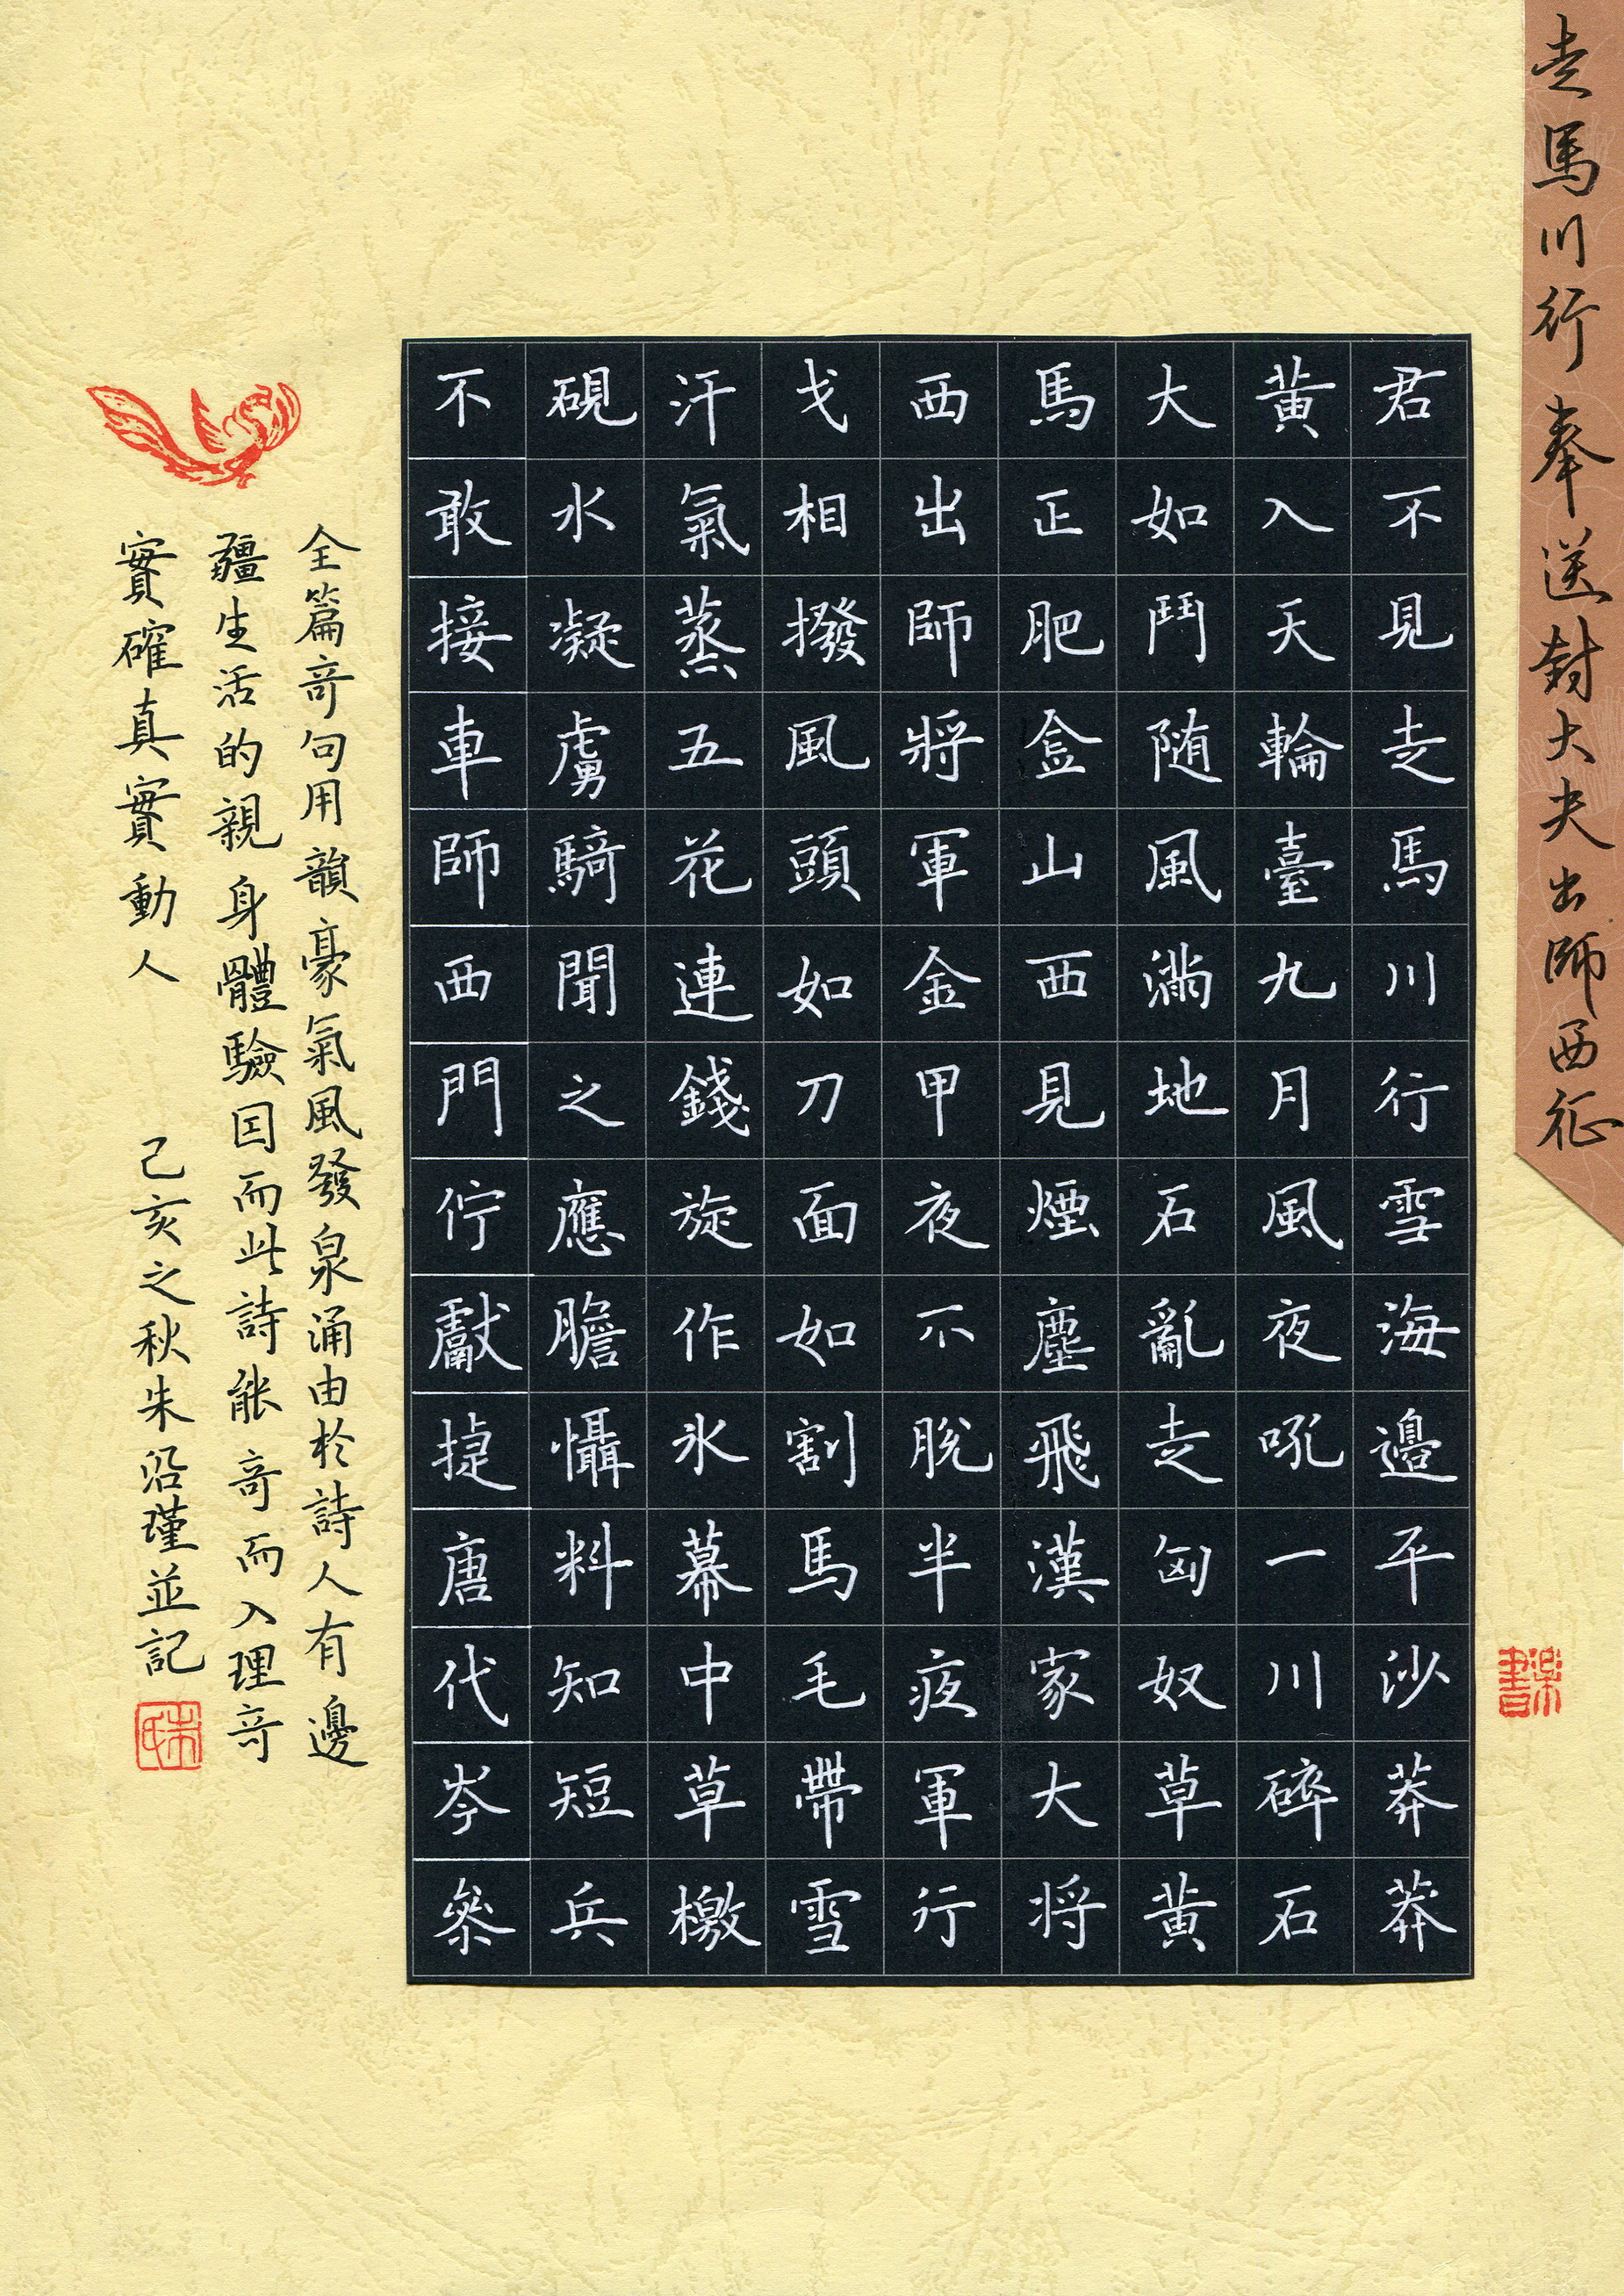 走馬川行奉送封大夫出師西征
君不見走馬川行雪海邊平沙莽莽
黃入天輪臺九月風夜吼一川碎石
大如鬥随風滿地石亂走匈奴草黃
馬正肥金山西見煙塵飛漢家大将
西出師將軍金甲夜不脫半夜軍行
戈相撥風頭如刀面如割馬毛帶雪
汗氣蒸五花連錢旋作氷幕中草檄
硯水凝虜騎聞之應膽懾料知短兵
不敢接車師西門佇獻捷唐代岑參
全篇奇句用韻豪氣風發泉涌由於詩人有邊
疆生活的親身體驗因而此詩能奇而入理奇
實確真實動人 己亥之秋朱沿瑾並記
朱氏
樂書